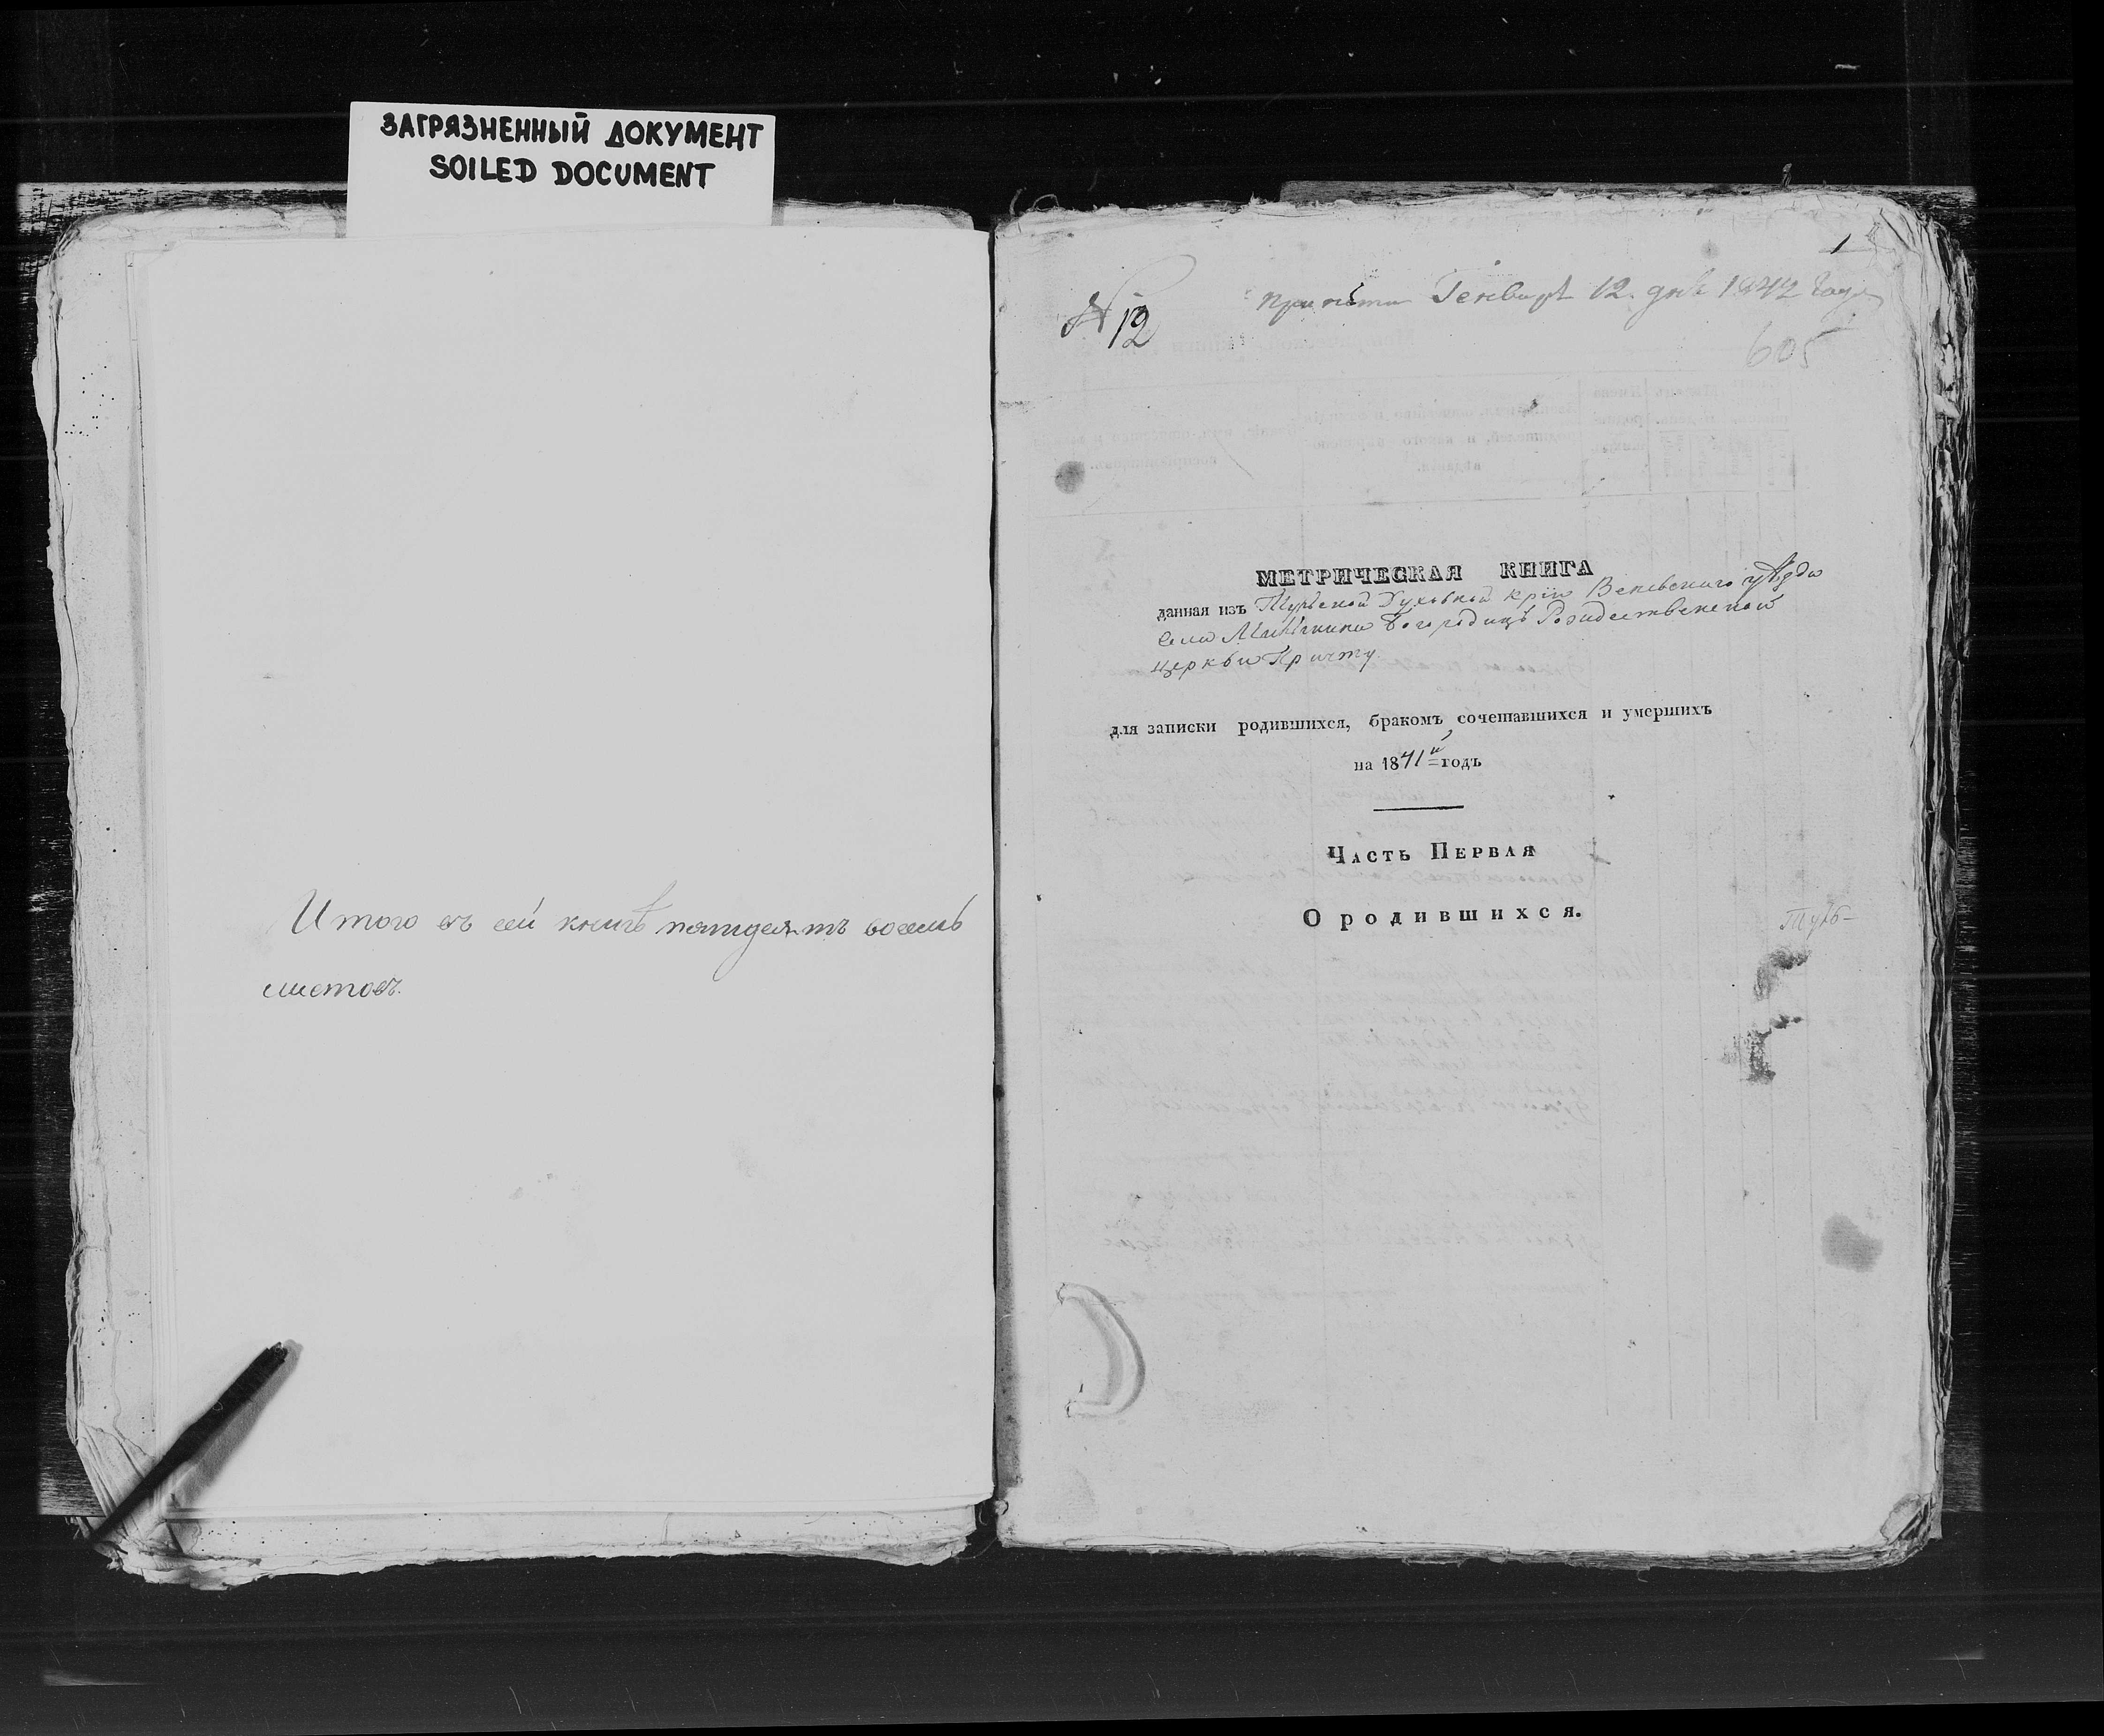 ЗАГРЯЗНЕННЫЙ ДОКУМЕНТ
SOILED DOCUMENT
Итого въ сей книгѣ пятидесятъ восемь
листовъ.
1
№ 12
Генваря 12 дня 1842 года
605
МЕТРИЧЕСКАЯ КНИГА
данная изъ Тульской Духовной Крїи Веневскаго уѣзда
села Богородице Рождественской
церкви Причту
для записки родившихся, бракомъ сочетавшихся и умершихъ
на 1841й годъ
Часть Первая
О родившихся.
Туль-